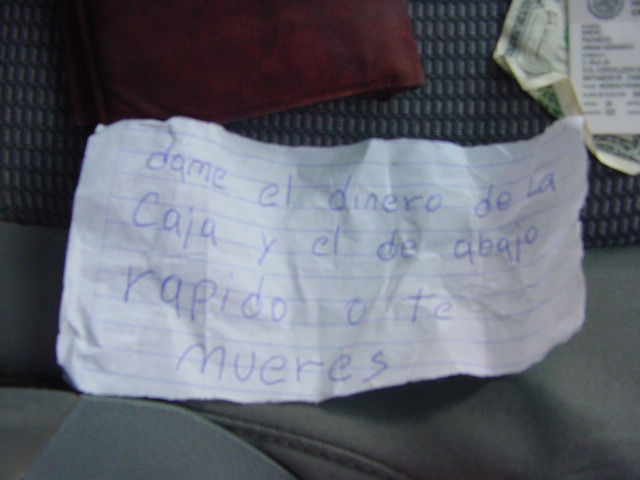 dame el dinero de La
Caja y el de abajo
rapido o te
mueres